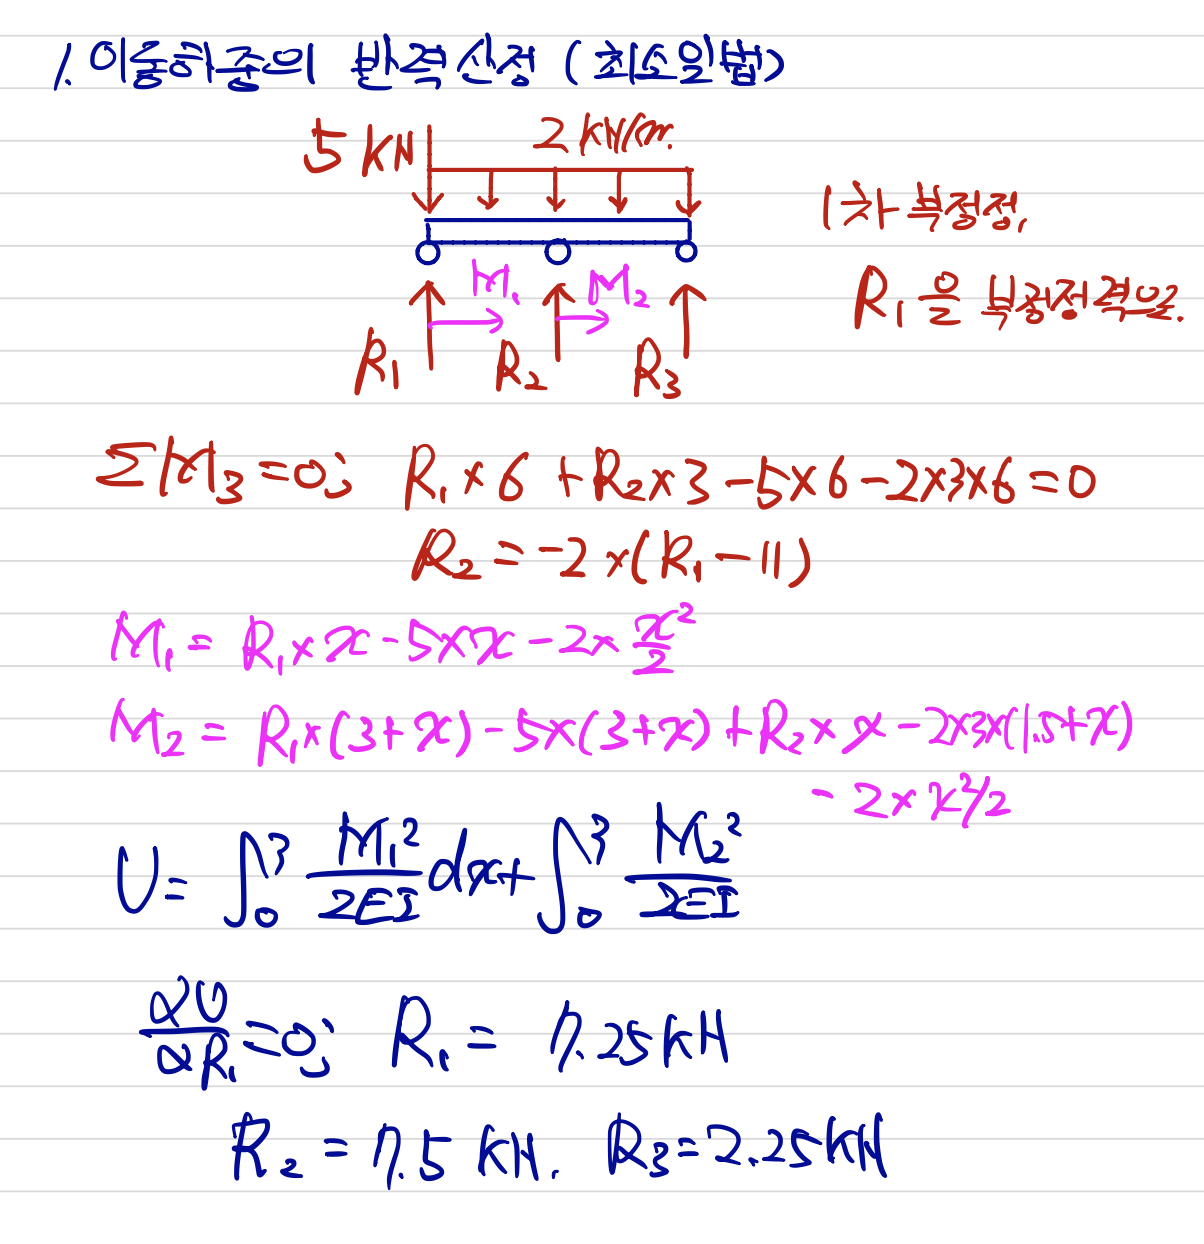 1. 이동하중의 반력산정 (최소일법)
5 KN 2 KN/m.
1차 부정정.
M₁ M₂
R₁은 부정정력임.
R₁ R₂ R₃
ΣM₃=0; R₁×6+R₂×3-5×6-2×3×6=0
R₂=-2×(R₁-11)
M₁=R₁×x-5×x-2×x²/2
M₂=R₁×(3+x)-5×(3+x)+R₂×x-2×3×(1.5+x)
-2×x²/2
U=∫₀³ M₁²/2EI dx+∫₀³ M₂²/2EI
∂U/∂R₁=0; R₁=7.25KN
R₂=7.5KN. R₃=2.25KN